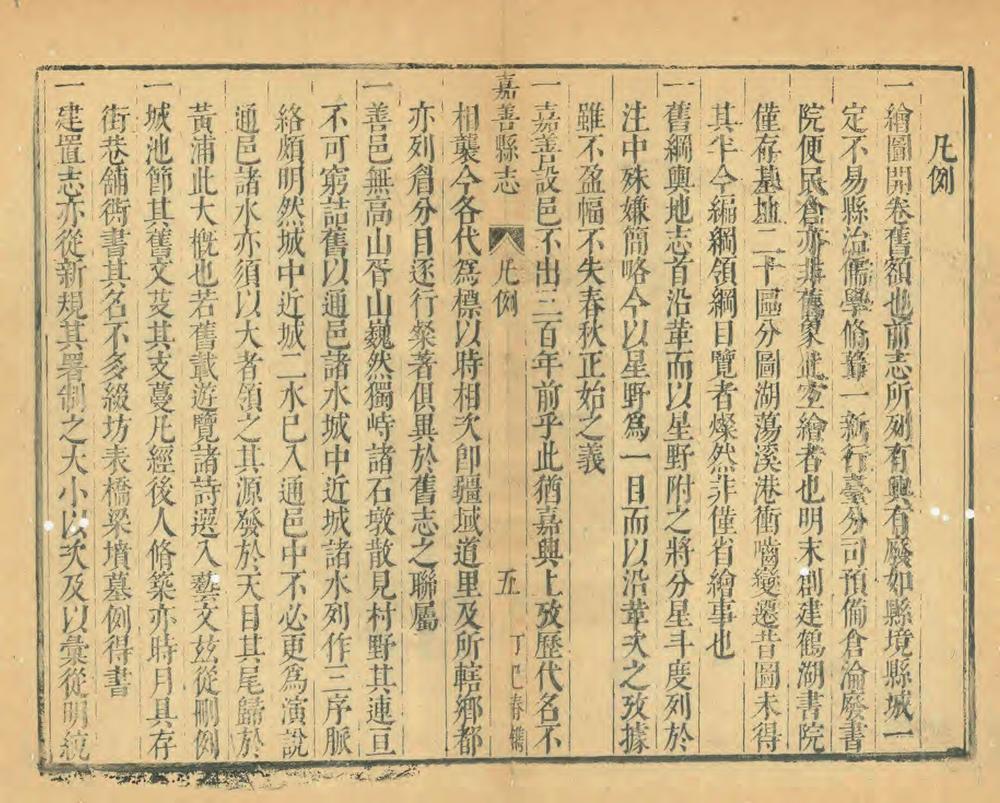 凡例
一繪圖開卷舊額也前志所列有興有廢如縣境縣城一
定不易縣治儒學脩葺一新行臺分司預備倉淪廢書
院便民倉亦非舊蒙此宜繪者也明末創建鶴湖書院
僅存基址二十區分圖湖蕩溪港衝嚙變遷昔圖未得
其半今編綱領綱目覽者燦然非僅省繪事也
一舊綱輿地志首沿革而以星野附之將分星斗度列於
注中殊嫌簡略今以星野爲一目而以沿革次之攷據
雖不盈幅不失春秋正始之義
嘉善縣志
凡例
五
丁巳春鐫
一嘉善設邑不出三百年前乎此猶嘉興上攷歷代名不
相襲今各代爲標以時相次卽疆域道里及所轄鄉都
亦列眉分目逐行粲著俱異於舊志之聯屬
一善邑無高山胥山巍然獨峙諸石墩散見村野其連亘
不可窮詰舊以通邑諸水城中近城諸水列作三序脈
絡頗明然城中近城二水已入通邑中不必更爲演說
通邑諸水亦須以大者領之其源發於天目其尾歸於
黃浦此大槪也若舊載遊覽諸詩選入藝文玆從刪例
一城池節其舊文芟其支蔓凡經後人脩築亦時月具存
街巷舖衖書其名不多綴坊表橋梁墳墓例得書
一建置志亦從新規其署制之大小以次及以彙從明統